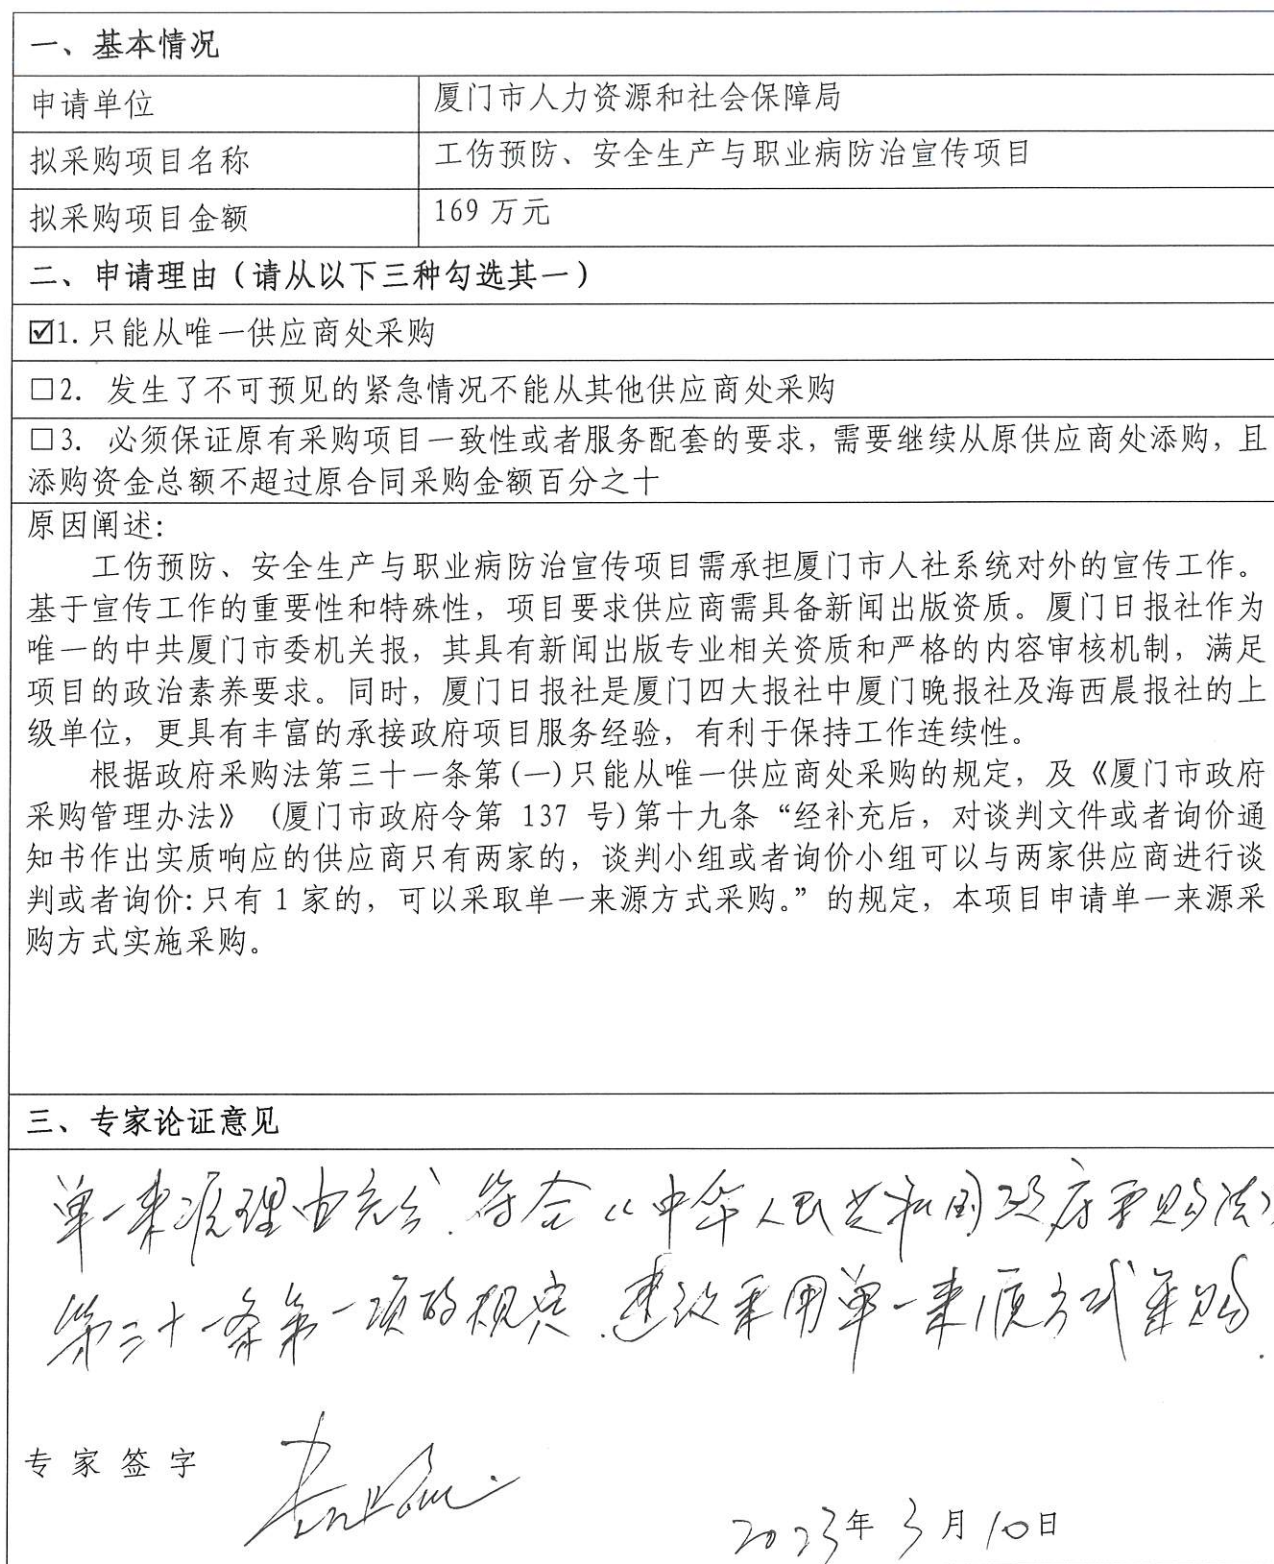 一、基本情况
申请单位
厦门市人力资源和社会保障局
拟采购项目名称
工伤预防、安全生产与职业病防治宣传项目
拟采购项目金额
169 万元
二、申请理由（请从以下三种勾选其一）
☑1. 只能从唯一供应商处采购
□2. 发生了不可预见的紧急情况不能从其他供应商处采购
□3. 必须保证原有采购项目一致性或者服务配套的要求，需要继续从原供应商处添购，且
添购资金总额不超过原合同采购金额百分之十
原因阐述：
工伤预防、安全生产与职业病防治宣传项目需承担厦门市人社系统对外的宣传工作。
基于宣传工作的重要性和特殊性，项目要求供应商需具备新闻出版资质。厦门日报社作为
唯一的中共厦门市委机关报，其具有新闻出版专业相关资质和严格的内容审核机制，满足
项目的政治素养要求。同时，厦门日报社是厦门四大报社中厦门晚报社及海西晨报社的上
级单位，更具有丰富的承接政府项目服务经验，有利于保持工作连续性。
根据政府采购法第三十一条第(一)只能从唯一供应商处采购的规定，及《厦门市政府
采购管理办法》 (厦门市政府令第 137 号)第十九条“经补充后，对谈判文件或者询价通
知书作出实质响应的供应商只有两家的，谈判小组或者询价小组可以与两家供应商进行谈
判或者询价:只有 1 家的，可以采取单一来源方式采购。”的规定，本项目申请单一来源采
购方式实施采购。
三、专家论证意见
单一来源理由充分.符合《中华人民共和国政府采购法》
第三十一条第一项的规定.建议采用单一来源方式采购.
专 家 签 字
2023年 3 月 10日